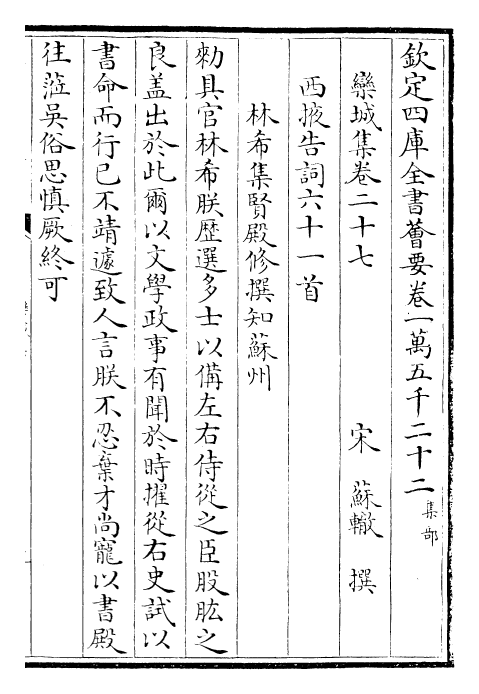 欽定四庫全書薈要卷一萬五千二十二集部
欒城集卷二十七 宋 蘇轍 撰
西掖告詞六十一首
林希集賢殿修撰知蘇州
勑具官林希朕歴選多士以備左右侍從之臣股肱之
良盖出於此爾以文學政事有聞於時擢從右史試以
書命而行已不靖遽致人言朕不忍棄才尚寵以書殿
往蒞吳俗思慎厥終可